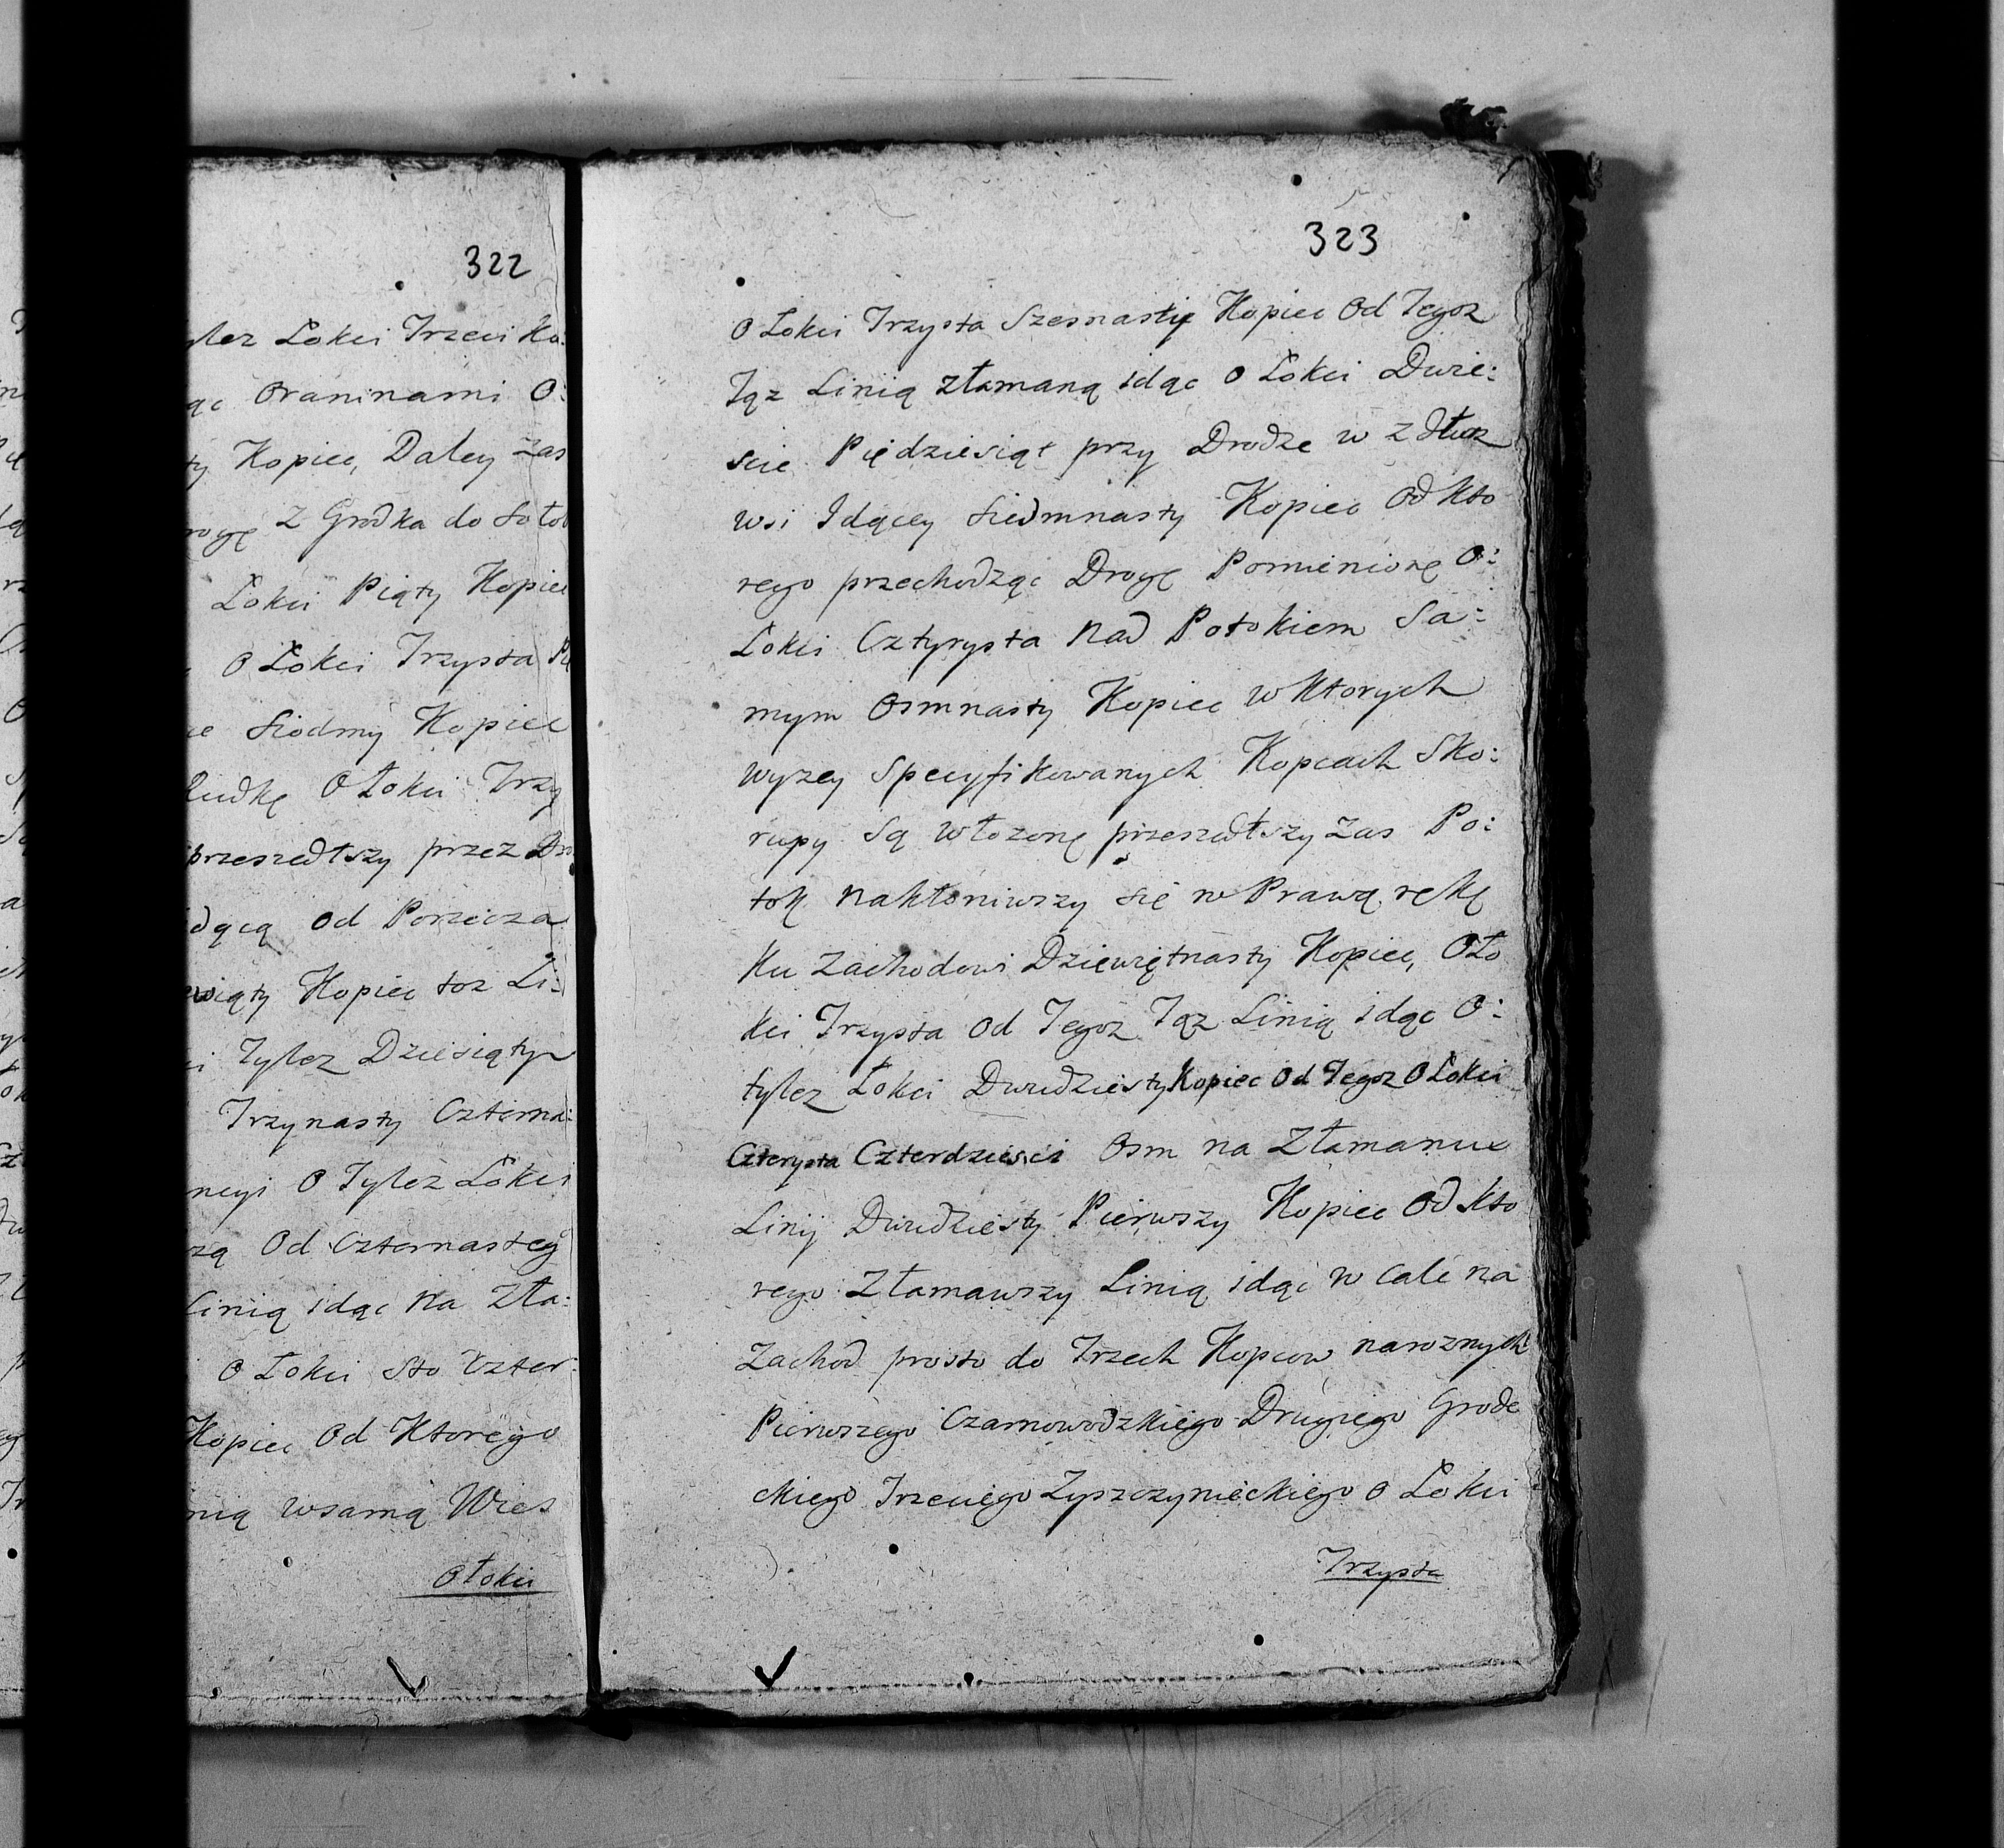 322
ylez Łokci Trzeci Ko:
ąc Oraninami O:
ty Kopiec, Daley zas
rogę Z Grodka do Soło
Łokci Piąty Kopiec
O Łokci Trzysta Pię
ie Siodmy Kopiec
Rudkę O Łokci Trzy
przeszedłszy przez Dro
idącą Od Porzicza
wiąty Kopiec toz Li:
i Tylez Dziesiąty
Trzynasty Czterna:
negi O Tylez Łokci
zą Od Czternasteg
Linią idąc Na Zła:
O Łokci Sto Czter:
Kopiec Od Ktorego
nią wsamą Wies
Ołokci
323
O Łokci Trzysta Szesnasty Kopiec Od Tegoz
Tąz Linią Złamaną idąc O Łokci Dwie:
scie Piędziesiąt przy Drodze w zdłuz
wsi Idącey Siedmnasty Kopiec Od Kto
rego przechodząc Drogę Pomienionę O:
Łokci Cztyrysta Nad Potokiem Sa:
mym Osmnasty Kopiec w Ktorych
wyzey Specyfikowanych Kopcach Sko:
rupy Są Włozonę przeszedłszy Zas Po:
tok Nakłoniwszy się w Prawą rękę
Ku Zachodowi Dziewiętnasty Kopiec, O Ło
kci Trzysta Od Tegoz Tąz Linią idąc O:
tylez Łokci Dwudziesty Kopiec Od Tegoz O Łokci
Czterysta Czterdziesci Osm na Złamaniu
Linij Dwudziesty Pierwszy Kopiec Od Kto
rego Złamawszy Linią idąc w cale na
Zachod prosto do Trzech Kopcow naroznych
Pierwszego Czarnowodzkiego Drugiego Grode
ckiego Trzeciego Zyszczynieckiego O Łokci
Trzysta